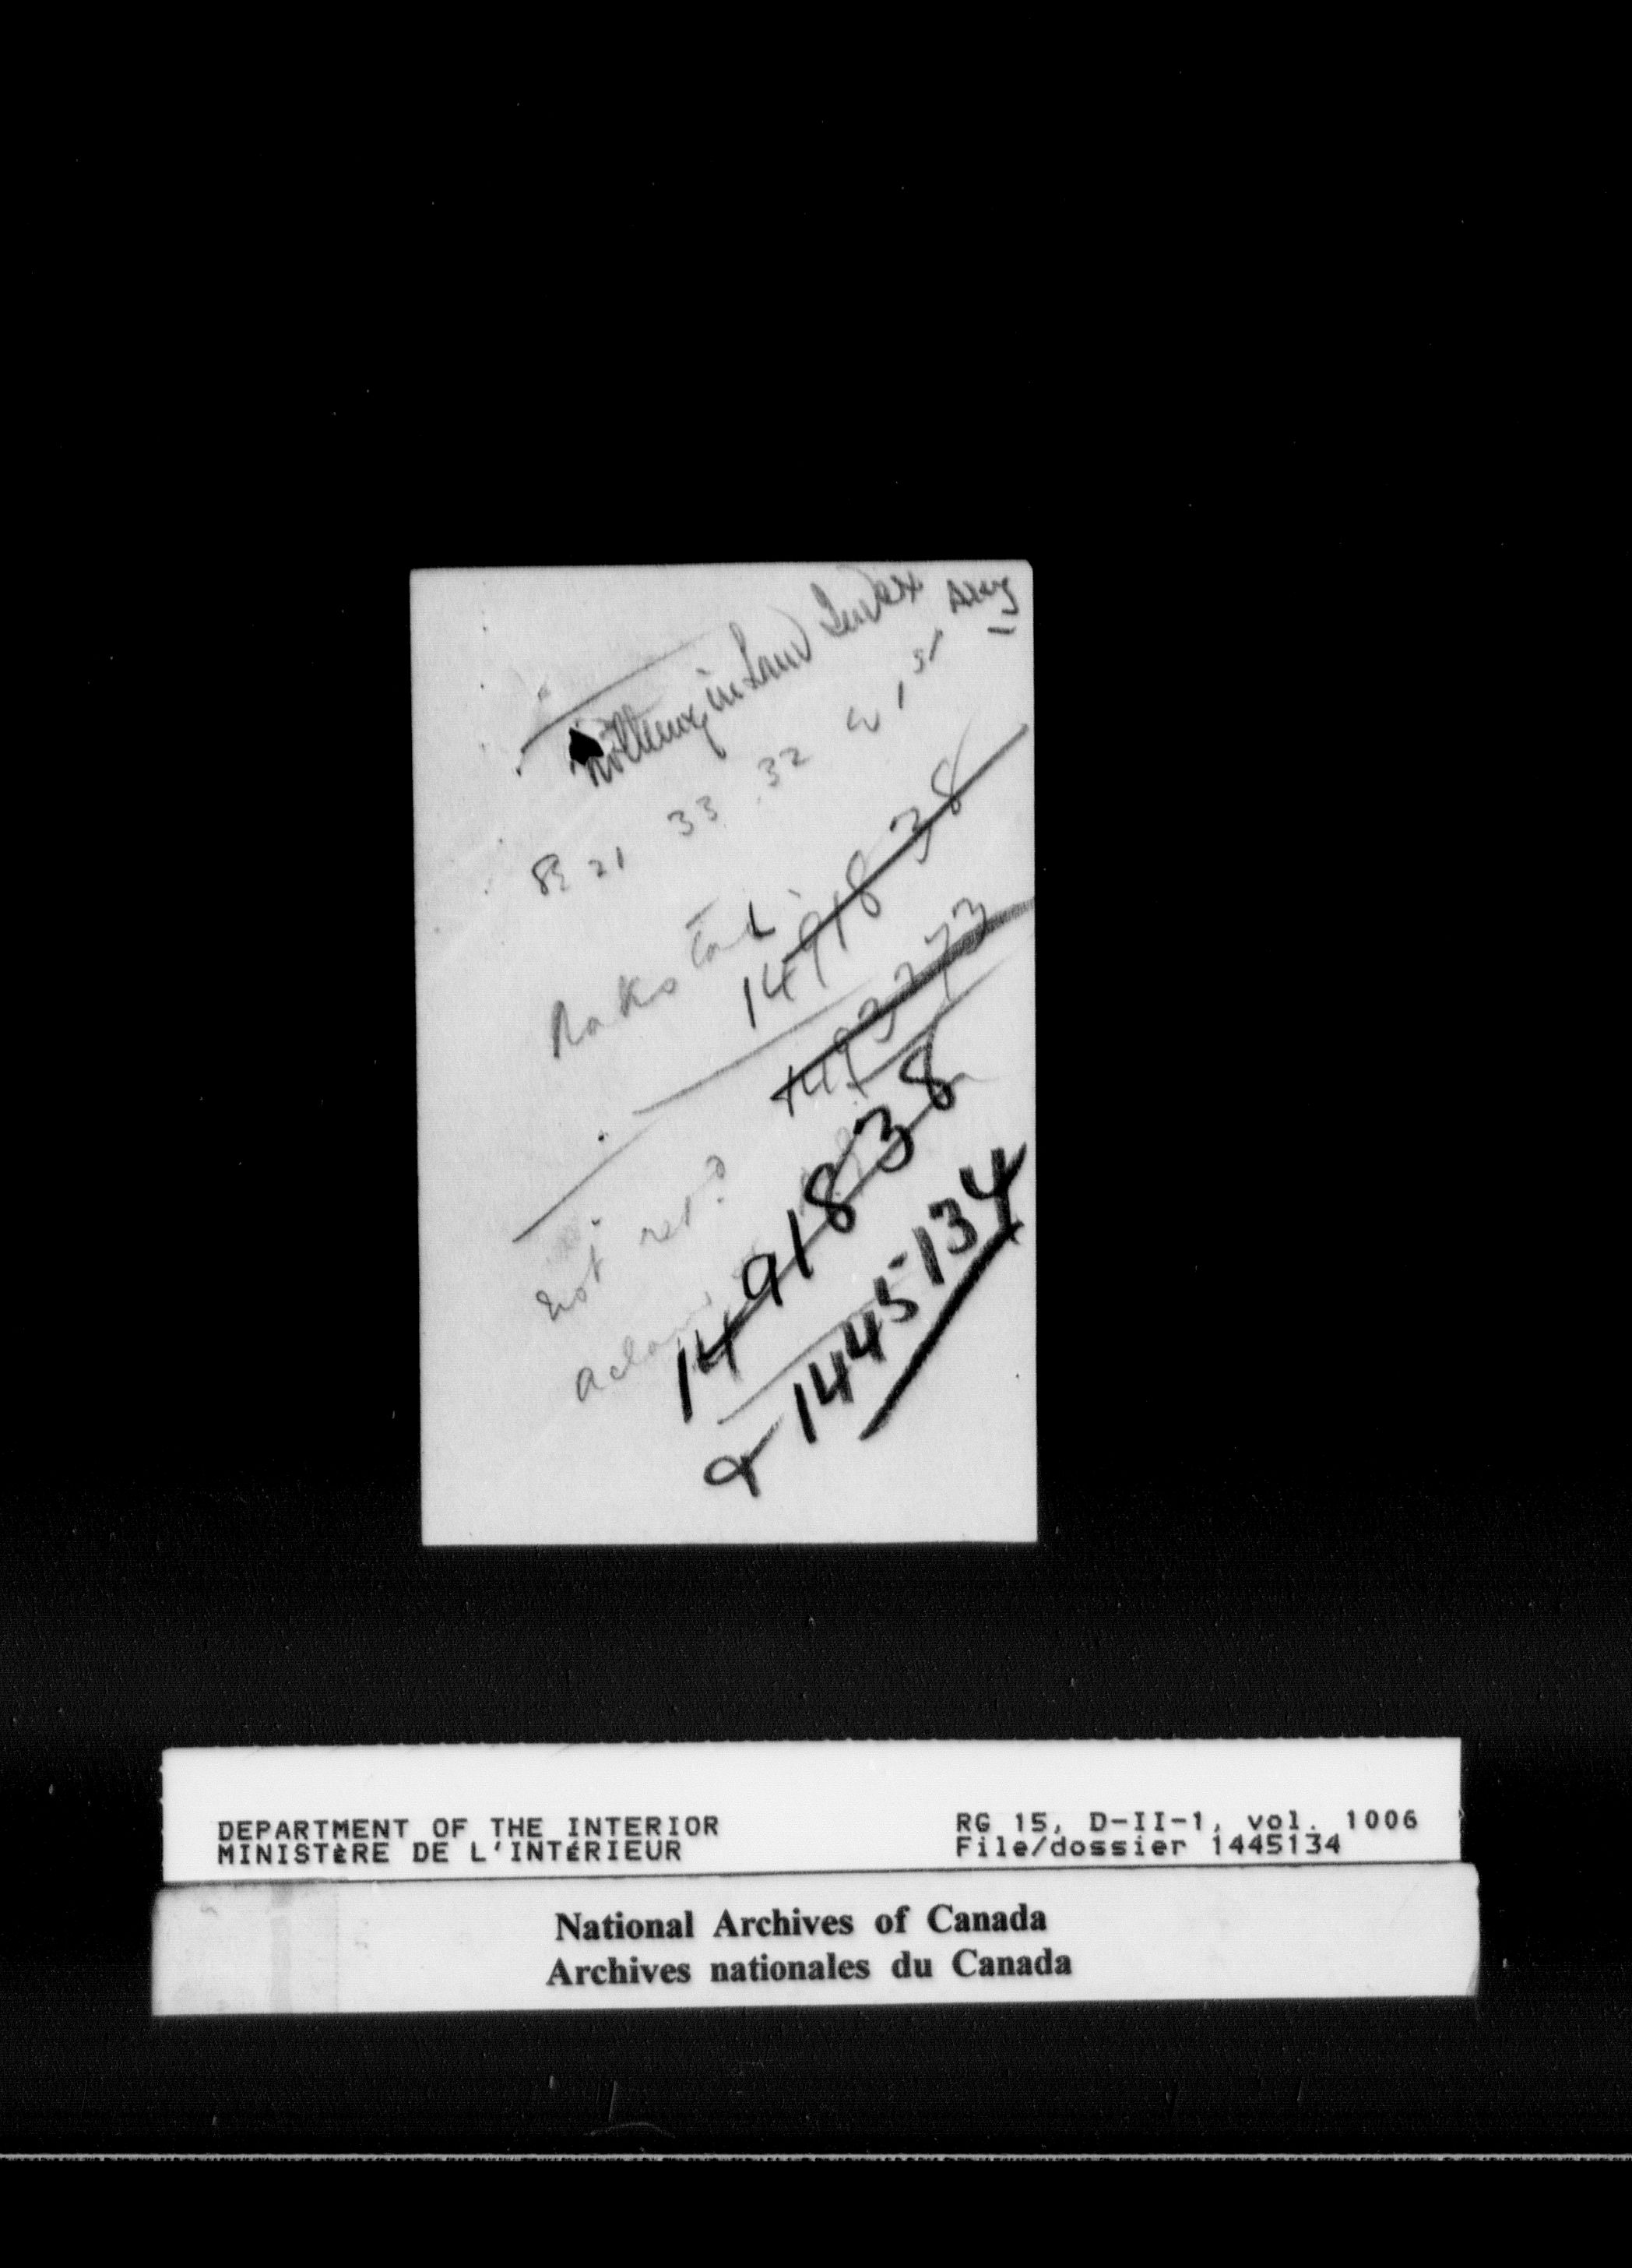 Nothing in Land Index
SE 21 33 32 W 1st
1491838
Not
1491838
1445134
DEPARTMENT OF THE INTERIOR
MINISTÈRE DE L'INTÉRIEUR
RG 15, D-II-1, vol. 1006
File/dossier 1445134
National Archives of Canada
Archives nationales du Canada